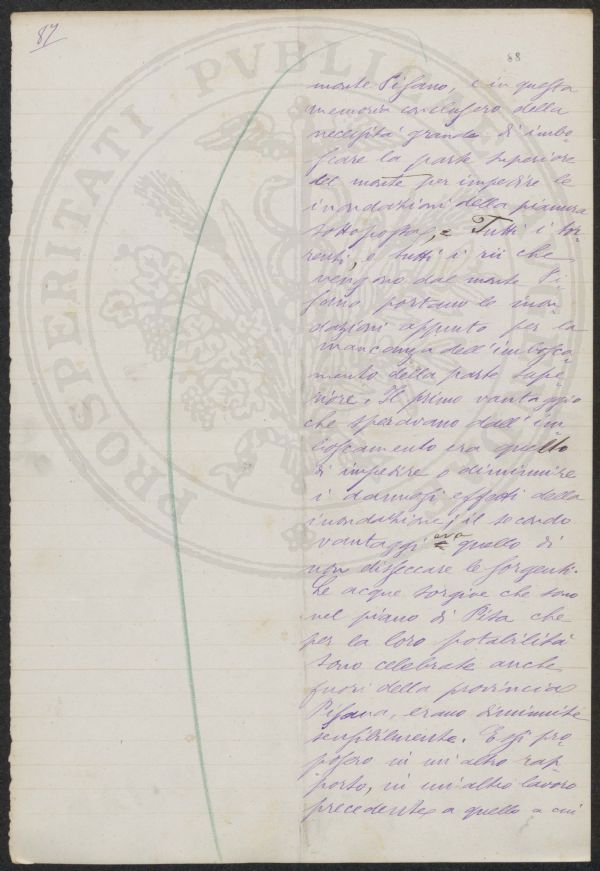 87
88
monte Pisano, e in questa
memoria conclusero della
necessità grande di imbo=
scare la parte superiore
del monte per impedire le
inondazioni della pianura
sottoposta, = Tutti i tor=
renti, e tutti i rii che
vengono dal monte Pi
sano portano le inon
dazioni appunto per la
mancanza dell'imbosca
mento della parte supe
riore. Il primo vantaggio
che speravano dall'im
boscamento era quello
di impedire o diminuire
i dannosi effetti della
inondazione; il secondo
vantaggi era quello di
non disseccare le sorgenti.
Le acque sorgive che sono
nel piano di Pisa che
per la loro potabilità
sono celebrate anche
fuori della provincia
Pisana, erano diminuite
sensibilmente. Essi pro
posero in un'altro rap
porto, in un'altro lavoro
precedente a quello a cui
PROSPERITATI PVBLICAE